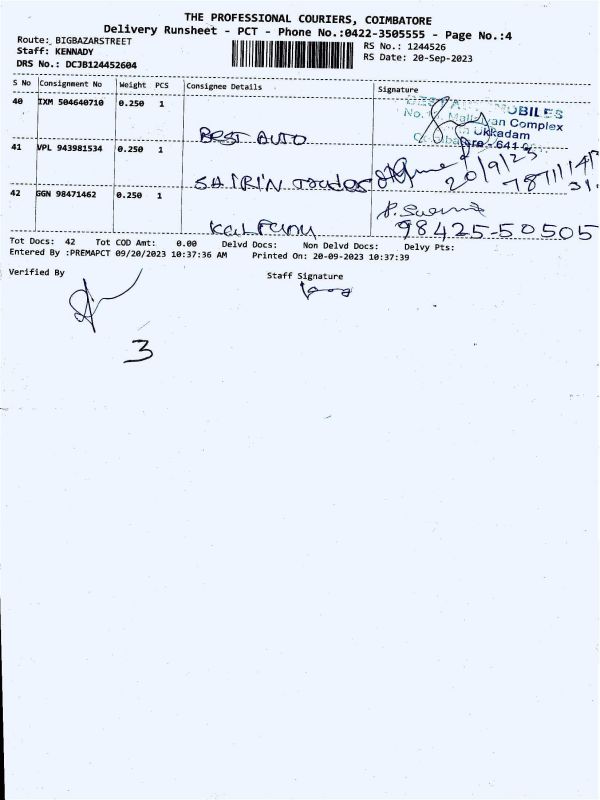 THE PROFESSIONAL COURIERS, COIMBATORE
Delivery Runsheet - PCT - Phone No.:0422-3505555 - Page No.:4
Route: BIGBAZARSTREET
RS No.: 1244526
Staff: KENNADY
RS Date: 20-Sep-2023
DRS No.: DCJB124452604
S No Consignment No Weight PCS Consignee Details Signature
40 IXM 504640710 0.250 1
BEST AUTO
UBILES
Complex
Ukkadam
41 VPL 943981534 0.250 1
SAIRIN Traders
20/9/23
42 GGN 98471462 0.250 1
98425-50505
Tot Docs: 42 Tot COD Amt: 0.00 Delvd Docs: Non Delvd Docs: Delvy Pts:
Entered By :PREMAPCT 09/20/2023 10:37:36 AM Printed On: 20-09-2023 10:37:39
Verified By Staff Signature
3